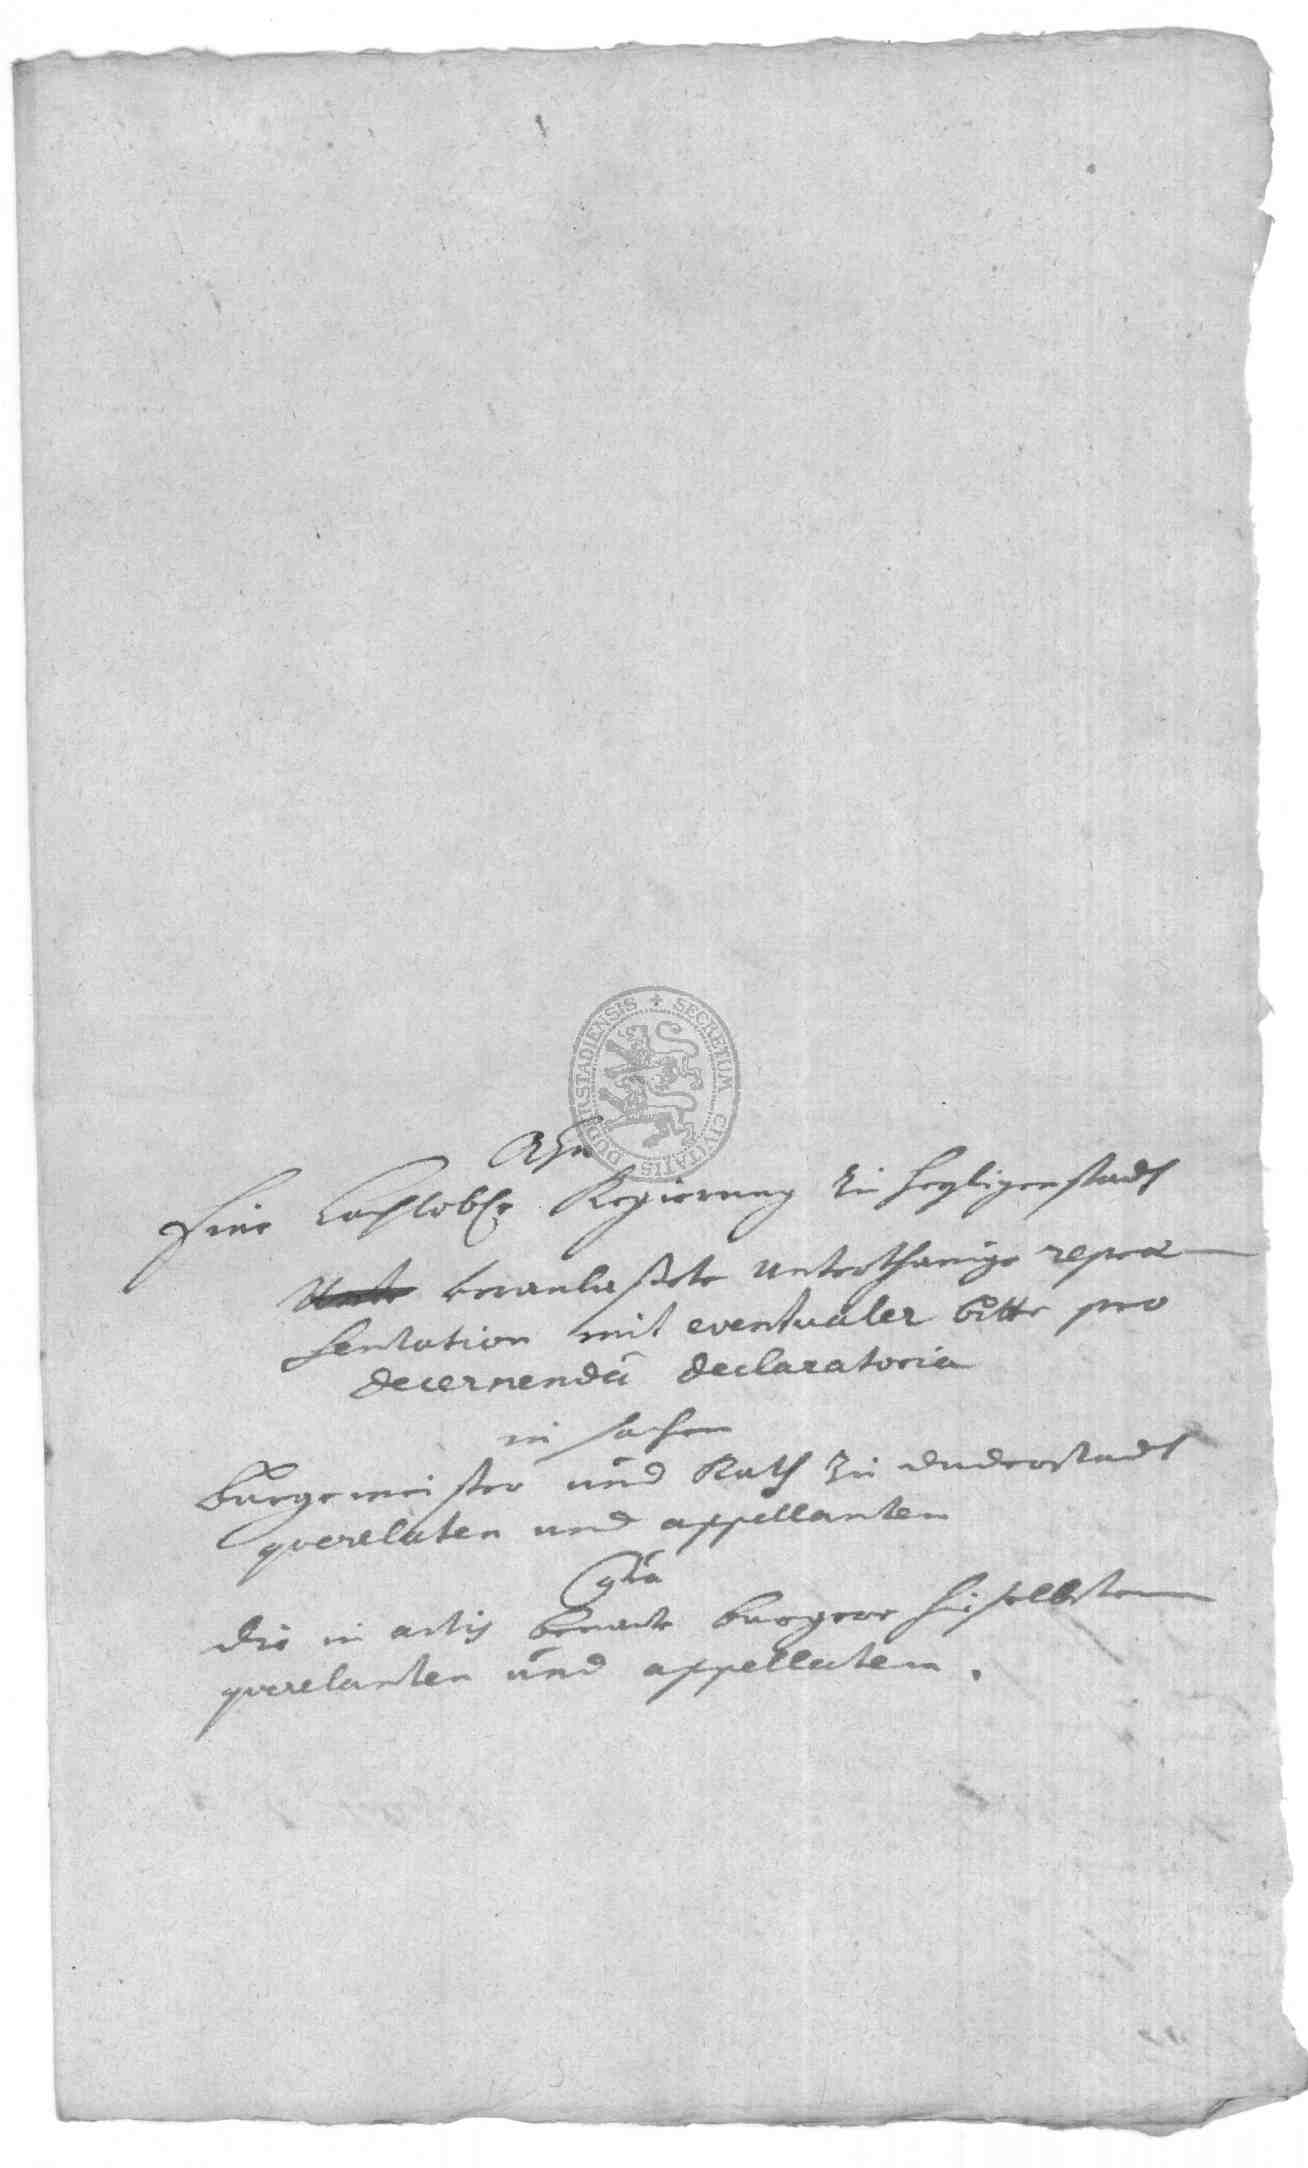 SECRETUM CIVITATIS DUDERSTADIENSIS
Ahn
Eine hochlobl. Regierung zu Heyligenstadt
veranlaßete unterthänige repræ
sentation mit eventualer bitte pro
decernendâ declaratoria
in sachen
Bürgermeister und Rath zu Duderstadt
querelaten und appellanten
C͞tra
die in actis benante burgere hieselbsten
querelanten und appellaten.